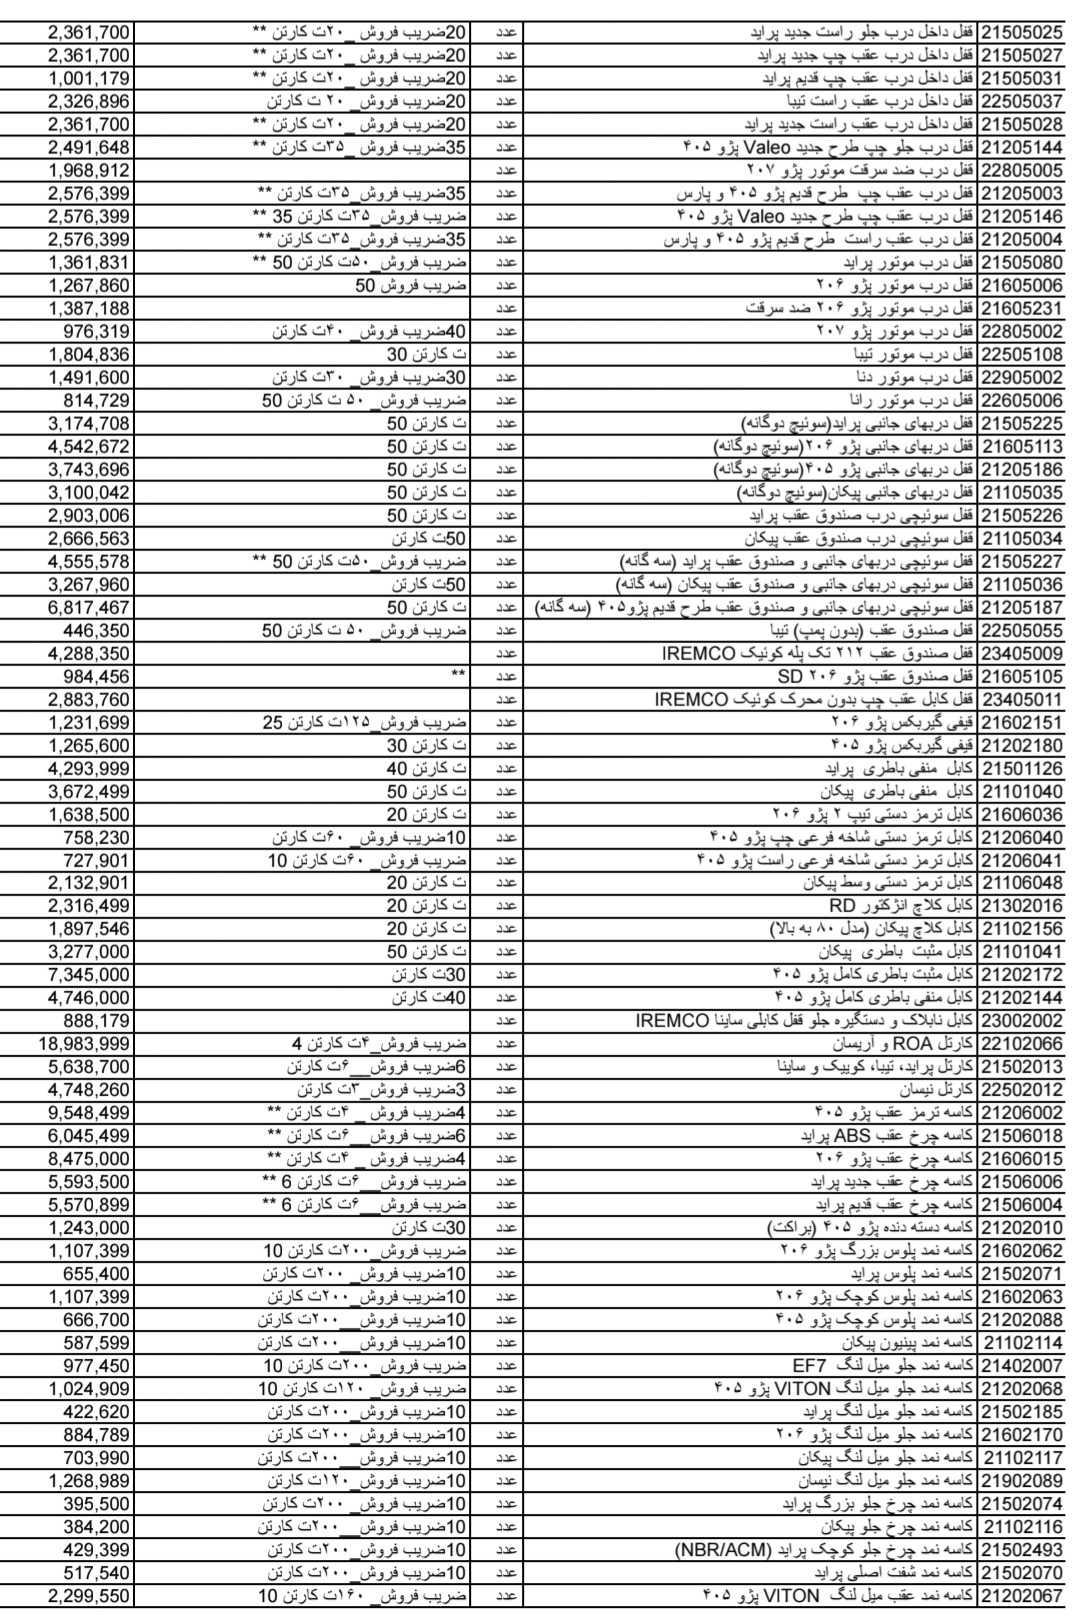 21505025 قفل داخل درب جلو راست جدید پراید عدد 20ضریب فروش _۲۰ت کارتن ** 2,361,700
21505027 قفل داخل درب عقب چپ جدید پراید عدد 20ضریب فروش _۲۰ت کارتن ** 2,361,700
21505031 قفل داخل درب عقب چپ قدیم پراید عدد 20ضریب فروش _۲۰ت کارتن ** 1,001,179
22505037 قفل داخل درب عقب راست تیبا عدد 20ضریب فروش_ ۲۰ ت کارتن 2,326,896
21505028 قفل داخل درب عقب راست جدید پراید عدد 20ضریب فروش _۲۰ت کارتن ** 2,361,700
21205144 قفل درب جلو چپ طرح جدید Valeo پژو ۴۰۵ عدد 35ضریب فروش _۳۵ت کارتن ** 2,491,648
22805005 قفل درب ضد سرقت موتور پژو ۲۰۷ عدد 1,968,912
21205003 قفل درب عقب چپ طرح قدیم پژو ۴۰۵ و پارس عدد 35ضریب فروش_۳۵ت کارتن ** 2,576,399
21205146 قفل درب عقب چپ طرح جدید Valeo پژو ۴۰۵ عدد ضریب فروش_۳۵ت کارتن 35 ** 2,576,399
21205004 قفل درب عقب راست طرح قدیم پژو ۴۰۵ و پارس عدد 35ضریب فروش_۳۵ت کارتن ** 2,576,399
21505080 قفل درب موتور پراید عدد ضریب فروش_۵۰ت کارتن 50 ** 1,361,831
21605006 قفل درب موتور پژو ۲۰۶ عدد ضریب فروش 50 1,267,860
21605231 قفل درب موتور پژو ۲۰۶ ضد سرقت عدد 1,387,188
22805002 قفل درب موتور پژو ۲۰۷ عدد 40ضریب فروش_ ۴۰ت کارتن 976,319
22505108 قفل درب موتور تیبا عدد ت کارتن 30 1,804,836
22905002 قفل درب موتور دنا عدد 30ضریب فروش_ ۳۰ت کارتن 1,491,600
22605006 قفل درب موتور رانا عدد ضریب فروش_ ۵۰ ت کارتن 50 814,729
21505225 قفل دربهای جانبی پراید(سوئیچ دوگانه) عدد ت کارتن 50 3,174,708
21605113 قفل دربهای جانبی پژو ۲۰۶(سوئیچ دوگانه) عدد ت کارتن 50 4,542,672
21205186 قفل دربهای جانبی پژو ۴۰۵(سوئیچ دوگانه) عدد ت کارتن 50 3,743,696
21105035 قفل دربهای جانبی پیکان(سوئیچ دوگانه) عدد ت کارتن 50 3,100,042
21505226 قفل سوئیچی درب صندوق عقب پراید عدد ت کارتن 50 2,903,006
21105034 قفل سوئیچی درب صندوق عقب پیکان عدد 50ت کارتن 2,666,563
21505227 قفل سوئیچی دربهای جانبی و صندوق عقب پراید (سه گانه) عدد ضریب فروش_۵۰ت کارتن 50 ** 4,555,578
21105036 قفل سوئیچی دربهای جانبی و صندوق عقب پیکان (سه گانه) عدد 50ت کارتن 3,267,960
21205187 قفل سوئیچی دربهای جانبی و صندوق عقب طرح قدیم پژو۴۰۵ (سه گانه) عدد ت کارتن 50 6,817,467
22505055 قفل صندوق عقب (بدون پمپ) تیبا عدد ضریب فروش_ ۵۰ ت کارتن 50 446,350
23405009 قفل صندوق عقب ۲۱۲ تک پله کوئیک IREMCO عدد 4,288,350
21605105 قفل صندوق عقب پژو ۲۰۶ SD عدد ** 984,456
23405011 قفل کابل عقب چپ بدون محرک کوئیک IREMCO عدد 2,883,760
21602151 قیفی گیربکس پژو ۲۰۶ عدد ضریب فروش_۱۲۵ت کارتن 25 1,231,699
21202180 قیفی گیربکس پژو ۴۰۵ عدد ت کارتن 30 1,265,600
21501126 کابل منفی باطری پراید عدد ت کارتن 40 4,293,999
21101040 کابل منفی باطری پیکان عدد ت کارتن 50 3,672,499
21606036 کابل ترمز دستی تیپ ۲ پژو ۲۰۶ عدد ت کارتن 20 1,638,500
21206040 کابل ترمز دستی شاخه فرعی چپ پژو ۴۰۵ عدد 10ضریب فروش_ ۶۰ت کارتن 758,230
21206041 کابل ترمز دستی شاخه فرعی راست پژو ۴۰۵ عدد ضریب فروش_ ۶۰ت کارتن 10 727,901
21106048 کابل ترمز دستی وسط پیکان عدد ت کارتن 20 2,132,901
21302016 کابل کلاچ انژکتور RD عدد ت کارتن 20 2,316,499
21102156 کابل کلاچ پیکان (مدل ۸۰ به بالا) عدد ت کارتن 20 1,897,546
21101041 کابل مثبت باطری پیکان عدد ت کارتن 50 3,277,000
21202172 کابل مثبت باطری کامل پژو ۴۰۵ عدد 30ت کارتن 7,345,000
21202144 کابل منفی باطری کامل پژو ۴۰۵ عدد 40ت کارتن 4,746,000
23002002 کابل نابلاک و دستگیره جلو قفل کابلی ساینا IREMCO عدد 888,179
22102066 کارتل ROA و آریسان عدد ضریب فروش_۴ت کارتن 4 18,983,999
21502013 کارتل پراید، تیبا، کوییک و ساینا عدد 6ضریب فروش__۶ت کارتن 5,638,700
22502012 کارتل نیسان عدد 3ضریب فروش_۳ت کارتن 4,748,260
21206002 کاسه ترمز عقب پژو ۴۰۵ عدد 4ضریب فروش _ ۴ت کارتن ** 9,548,499
21506018 کاسه چرخ عقب ABS پراید عدد 6ضریب فروش__۶ت کارتن ** 6,045,499
21606015 کاسه چرخ عقب پژو ۲۰۶ عدد 4ضریب فروش _ ۴ت کارتن ** 8,475,000
21506006 کاسه چرخ عقب جدید پراید عدد ضریب فروش__۶ت کارتن 6 ** 5,593,500
21506004 کاسه چرخ عقب قدیم پراید عدد ضریب فروش__۶ت کارتن 6 ** 5,570,899
21202010 کاسه دسته دنده پژو ۴۰۵ (براکت) عدد 30ت کارتن 1,243,000
21602062 کاسه نمد پلوس بزرگ پژو ۲۰۶ عدد ضریب فروش_۲۰۰ت کارتن 10 1,107,399
21502071 کاسه نمد پلوس پراید عدد 10ضریب فروش_ ۲۰۰ت کارتن 655,400
21602063 کاسه نمد پلوس کوچک پژو ۲۰۶ عدد 10ضریب فروش_۲۰۰ت کارتن 1,107,399
21202088 کاسه نمد پلوس کوچک پژو ۴۰۵ عدد 10ضریب فروش__۲۰۰ت کارتن 666,700
21102114 کاسه نمد پینیون پیکان عدد 10ضریب فروش__۲۰۰ت کارتن 587,599
21402007 کاسه نمد جلو میل لنگ EF7 عدد ضریب فروش_۲۰۰ت کارتن 10 977,450
21202068 کاسه نمد جلو میل لنگ VITON پژو ۴۰۵ عدد ضریب فروش_۱۲۰ت کارتن 10 1,024,909
21502185 کاسه نمد جلو میل لنگ پراید عدد 10ضریب فروش__۲۰۰ت کارتن 422,620
21602170 کاسه نمد جلو میل لنگ پژو ۲۰۶ عدد 10ضریب فروش__۲۰۰ت کارتن 884,789
21102117 کاسه نمد جلو میل لنگ پیکان عدد 10ضریب فروش__۲۰۰ت کارتن 703,990
21902089 کاسه نمد جلو میل لنگ نیسان عدد 10ضریب فروش_۱۲۰ت کارتن 1,268,989
21502074 کاسه نمد چرخ جلو بزرگ پراید عدد 10ضریب فروش_ ۲۰۰ت کارتن 395,500
21102116 کاسه نمد چرخ جلو پیکان عدد 10ضریب فروش__۲۰۰ت کارتن 384,200
21502493 کاسه نمد چرخ جلو کوچک پراید (NBR/ACM) عدد 10ضریب فروش__۲۰۰ت کارتن 429,399
21502070 کاسه نمد شفت اصلی پراید عدد 10ضریب فروش_۲۰۰ت کارتن 517,540
21202067 کاسه نمد عقب میل لنگ VITON پژو ۴۰۵ عدد ضریب فروش_۱۶۰ت کارتن 10 2,299,550